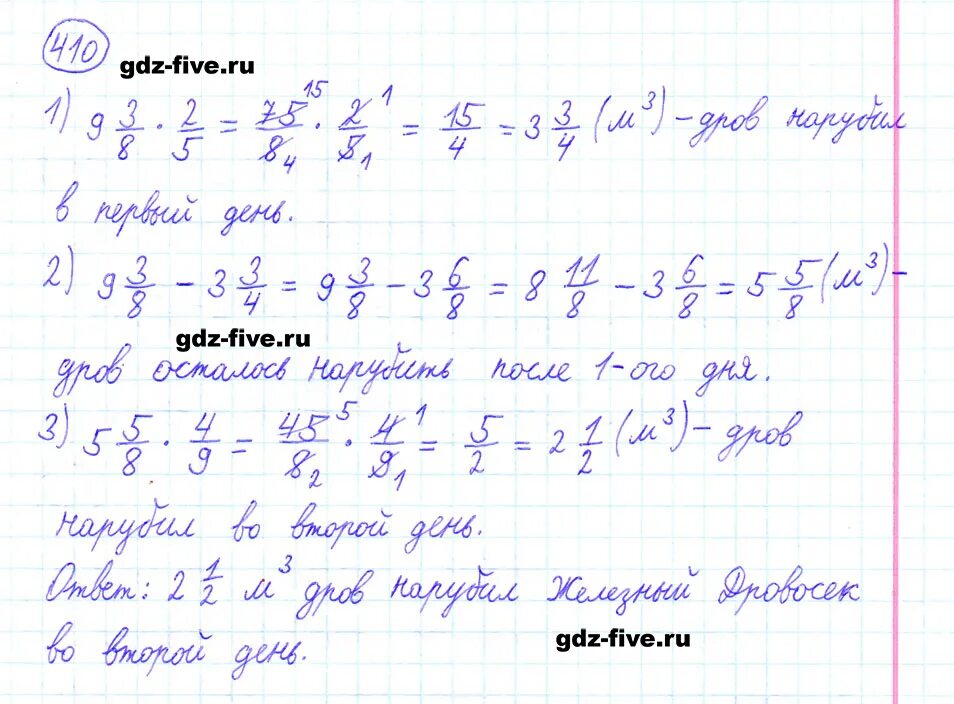 410
gdz-five.ru
1) 9 3/8 · 2/5 = 75 15/8 4 · 2 1/5 1 = 15/4 = 3 3/4 (м³) - дров нарубил
в первый день.
2) 9 3/8 - 3 3/4 = 9 3/8 - 3 6/8 = 8 11/8 - 3 6/8 = 5 5/8 (м³) -
gdz-five.ru
дров осталось нарубить после 1-ого дня.
3) 5 5/8 · 4/9 = 45 5/8 2 · 4 1/9 1 = 5/2 = 2 1/2 (м³) - дров
нарубил во второй день.
Ответ: 2 1/2 м³ дров нарубил Железный Дровосек
во второй день.
gdz-five.ru